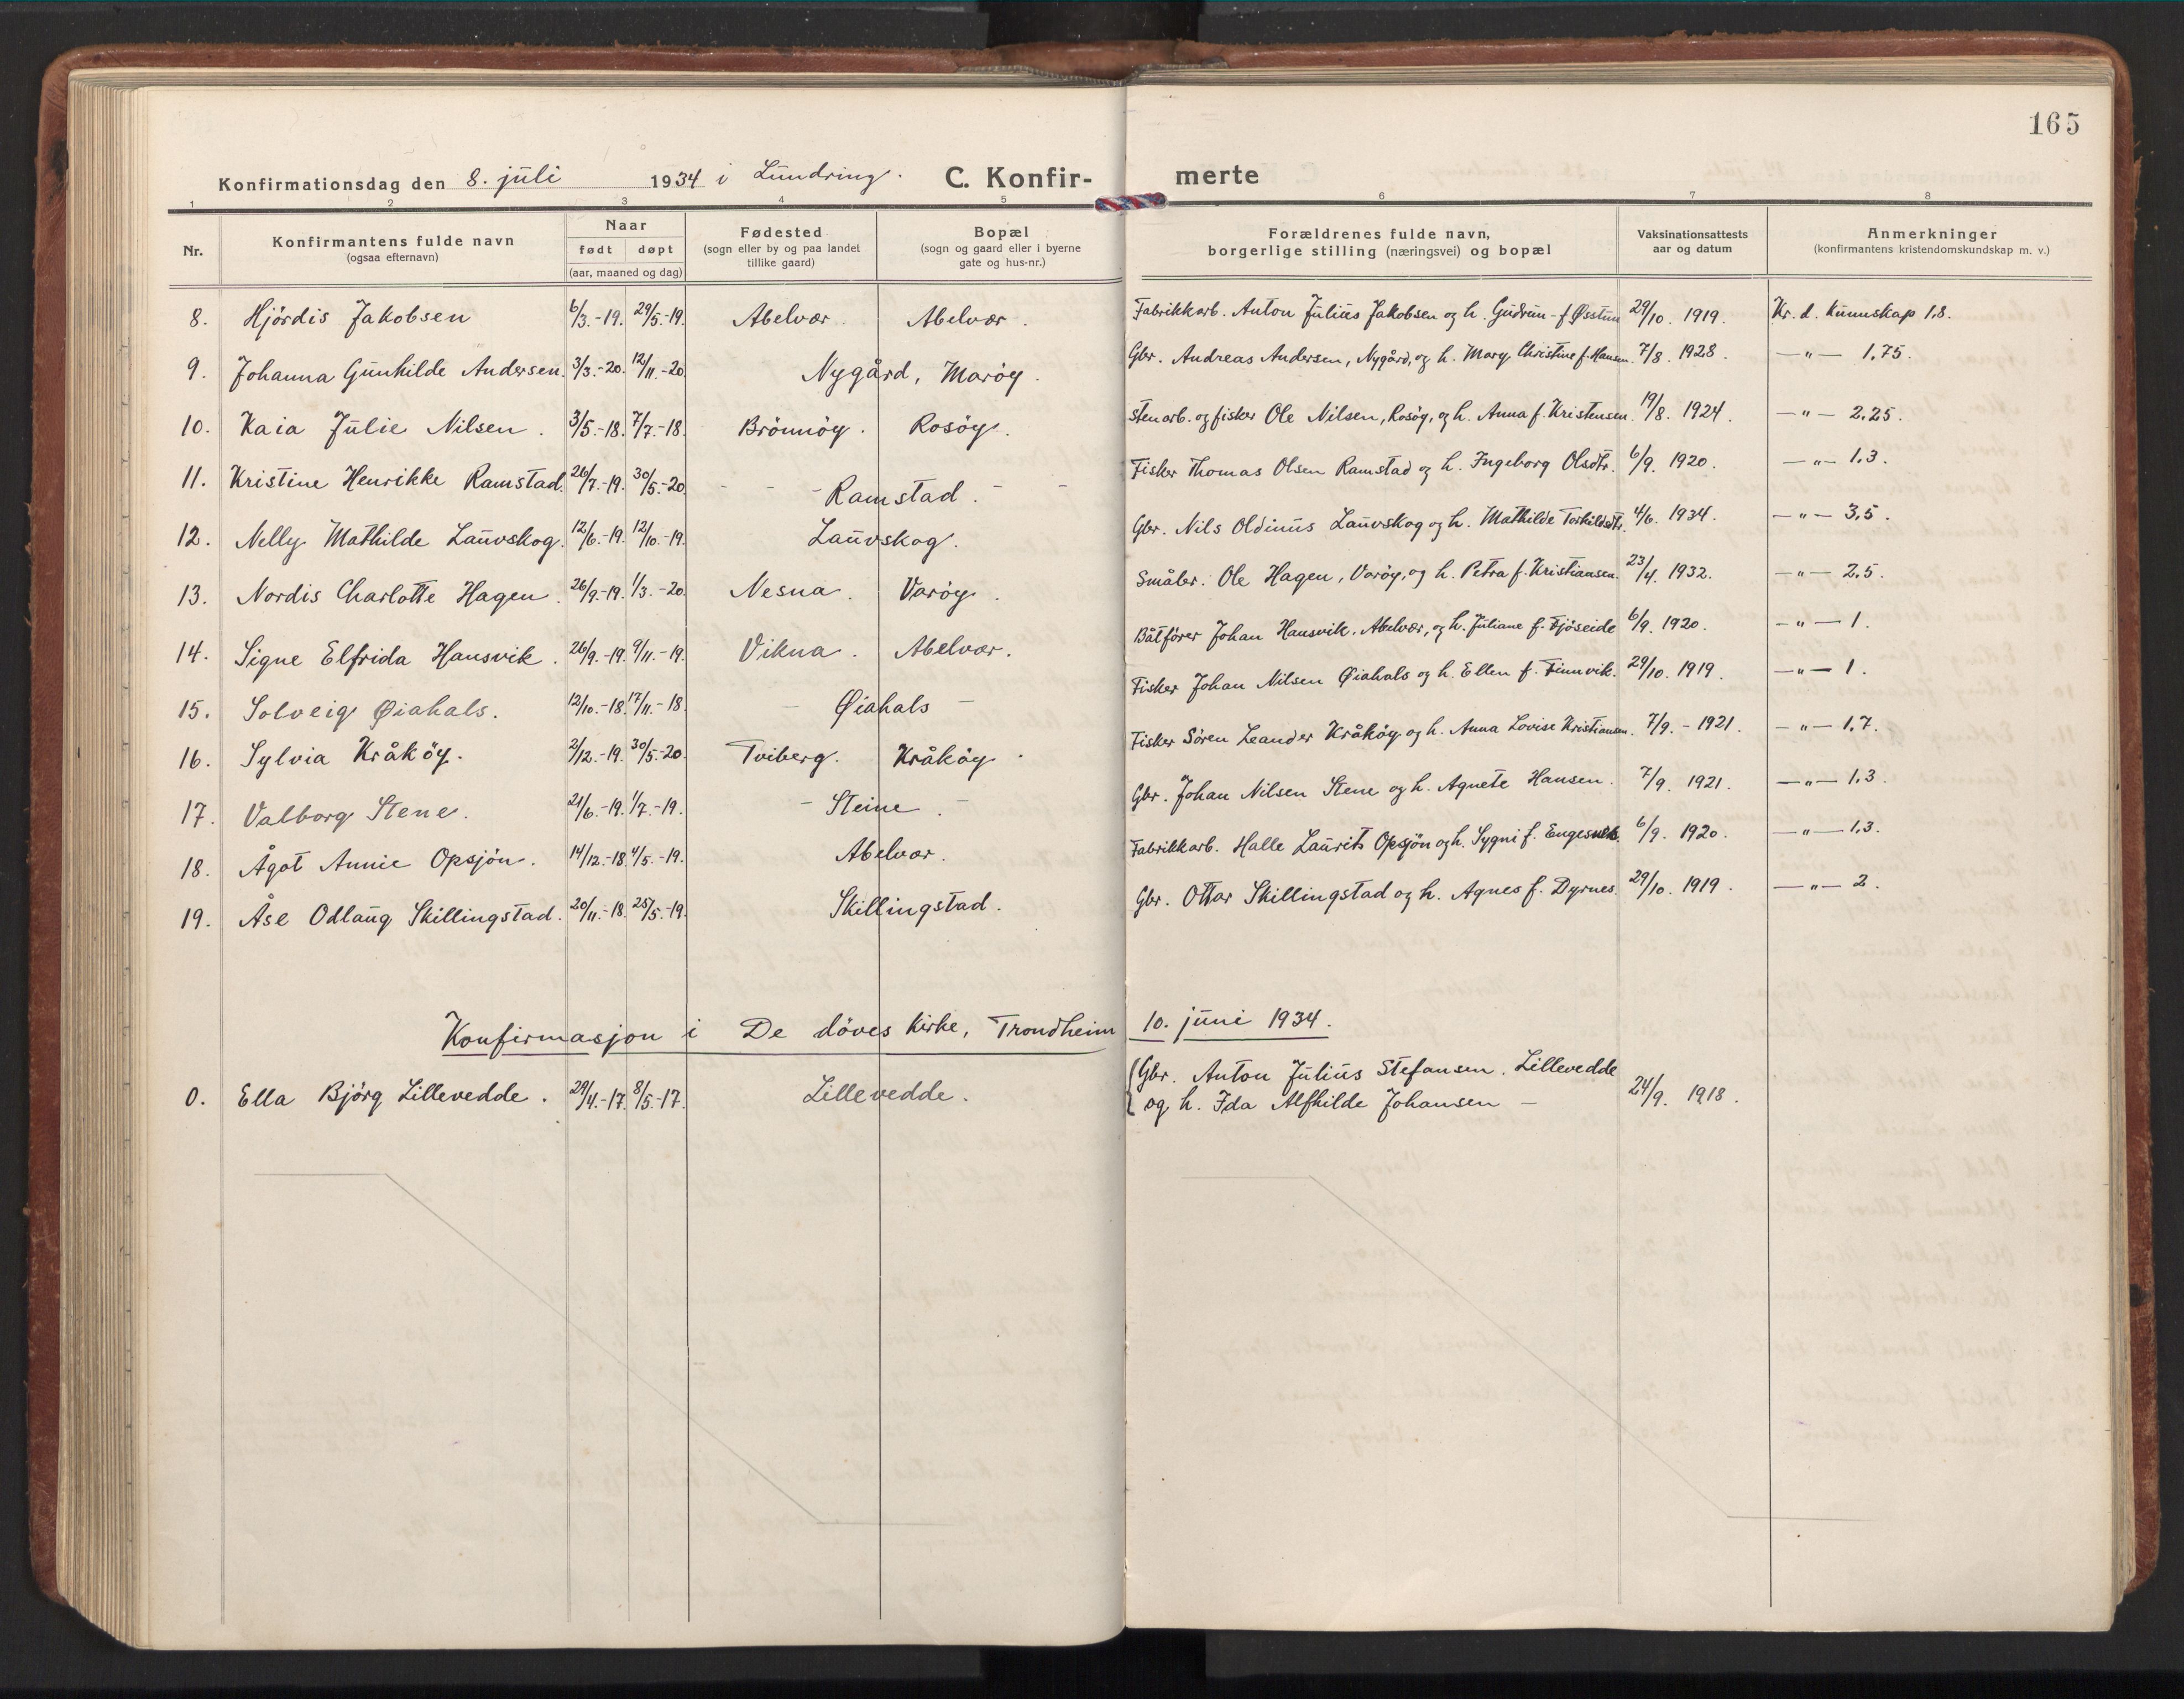 165
Konfirmationsdag den 8. juli 1934 i Lundring. C. Konfir- merte
1 2 3 4 5 6 7 8
Nr. Konfirmantens fulde navn (ogsaa efternavn) Naar født døpt (aar, maaned og dag) Fødested (sogn eller by og paa landet tillike gaard) Bopæl (sogn og gaard eller i byerne gate og hus-nr.) Forældrenes fulde navn, borgerlige stilling (næringsvei) og bopæl Vaksinationsattests aar og datum Anmerkninger (konfirmantens kristendomskundskap m. v.)
8. Hjördis Jakobsen 6/3.-19. 29/5.-19. Abelvær. Abelvær. Fabrikkarb. Anton Julius Jakobsen og h. Gudrun f. Øsstun 29/10. 1919. Kr. d. kunnskap 1,8.
9. Johanna Gunhilde Andersen. 3/3.-20. 12/11.-20. Nygård, Maröy. Gbr. Andreas Andersen, Nygård, og h. Mary Christine f. Hansen. 7/8. 1928. —"— 1,75.
10. Kaia Julie Nilsen. 3/5.-18. 7/7.-18. Brönnöy. Rosöy. Stenarb. og fisker Ole Nilsen, Rosöy, og h. Anna f. Kristensen. 19/8. 1924. —"— 2,25.
11. Kristine Henrikke Ramstad. 26/7.-19. 30/5.-20. - - - Ramstad. - - Fisker Thomas Olsen Ramstad og h. Ingeborg Olsdtr. 6/9. 1920. —"— 1,3.
12. Nelly Mathilde Lauvskog. 12/6.-19. 12/10.-19. Lauvskog. Gbr. Nils Oldinus Lauvskog og h. Mathilde Torkildsdtr. 4/6. 1934. —"— 3,5.
13. Nordis Charlotte Hagen. 26/9.-19. 1/3.-20. Nesna. Varöy. Småbr. Ole Hagen, Varöy, og h. Petra f. Kristiansen. 23/4. 1932. —"— 2,5.
14. Signe Elfrida Hansvik. 26/9.-19. 9/11.-19. Vikna. Abelvær. Båtförer Johan Hansvik, Abelvær, og h. Juliane f. Fjöseide 6/9. 1920. —"— 1.
15. Solveig Øiahals. 12/10.-18. 17/11.-18. - Øiahals - Fisker Johan Nilsen Øiahals og h. Ellen f. Finnvik. 29/10. 1919. —"— 1.
16. Sylvia Kråköy. 2/12.-19. 30/5.-20. Tviberg. Kråköy. Fisker Sören Leander Kråköy og h. Anna Lovise Kristiansen. 7/9. - 1921. —"— 1,7.
17. Valborg Stene. 21/6.-19. 1/7.-19. - Steine. - Gbr. Johan Nilsen Stene og h. Agnete Hansen. 7/9. 1921. —"— 1,3.
18. Ågot Annie Opsjön. 14/12.-18. 4/5.-19. Abelvær. Fabrikkarb. Halle Laurits Opsjön og h. Sygni f. Engesvik. 6/9. 1920. —"— 1,3.
19. Åse Odlaug Skillingstad. 20/11.-18. 25/5.-19. Skillingstad. Gbr. Ottar Skillingstad og h. Agnes f. Dyrnes. 29/10. 1919. —"— 2.
Konfirmasjon i De döves kirke, Trondheim 10. juni 1934.
0. Ella Björg Lillevedde. 29/4.-17. 8/5.-17. Lillevedde. Gbr. Anton Julius Stefansen. Lillevedde
og h. Ida Alfhilde Johansen — 24/9. 1918.